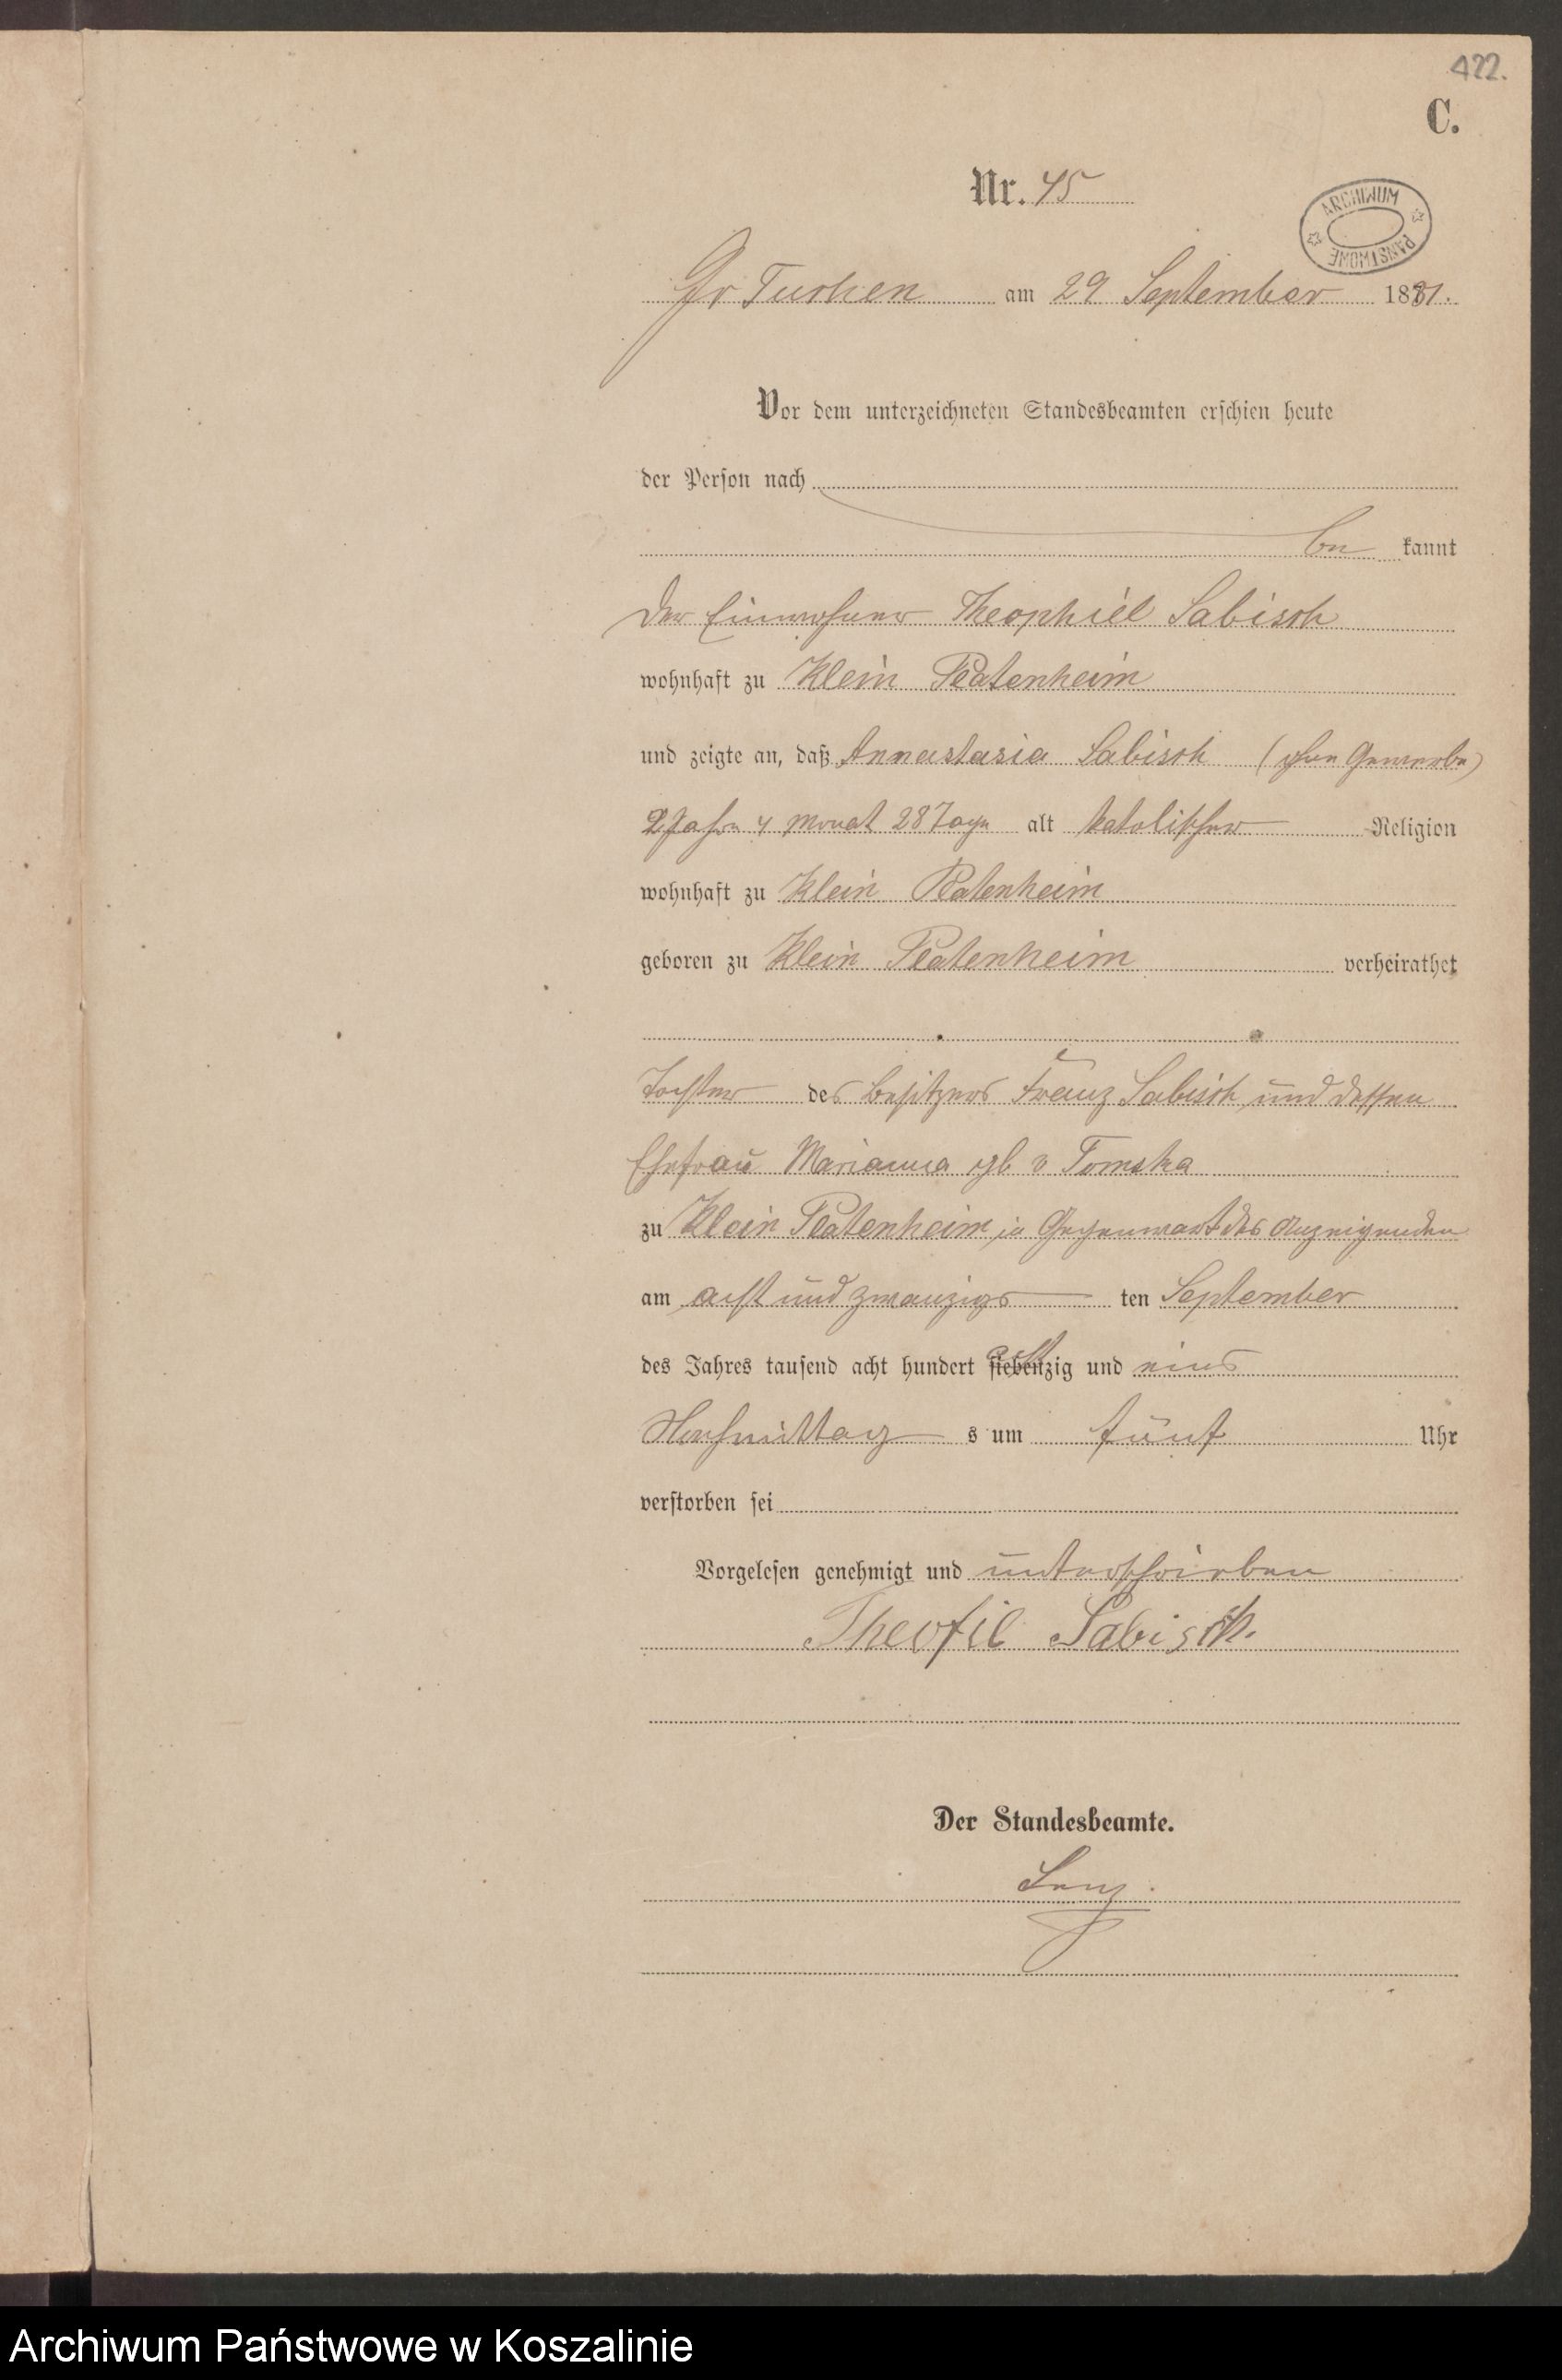 422.
C.
Nr. 45
ARCHIWUM PAŃSTWOWE
Gr Tuchen am 29 September 1881.
Vor dem unterzeichneten Standesbeamten erschien heute
der Person nach
be kannt
der Einwohner Theophiel Sabisch
wohnhaft zu Klein Platenheim
und zeigte an, daß Annastasia Sabisch (ohne Gewerbe)
2 Jahre 4 Monat 28 Tage alt katolischer Religion
wohnhaft zu Klein Platenheim
geboren zu Klein Platenheim verheirathet
Tochter des Besitzers Franz Sabisch und dessen
Ehefrau Marianna gb v Tomska
zu Klein Platenheim in Gegenwart des Anzeigenden
am acht und zwanzigs ten September
des Jahres tausend acht hundert siebenzig acht und eins
Nachmittag s um fünf Uhr
verstorben sei
Vorgelesen genehmigt und unterschrieben
Theofil Sabisch.
Der Standesbeamte.
Archiwum Państwowe w Koszalinie